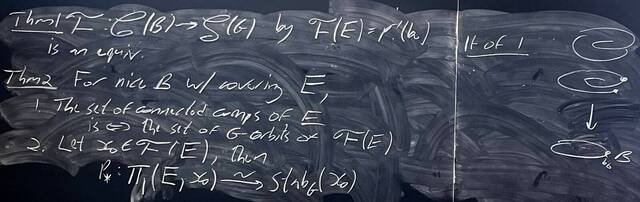 Thm 1 F : C(B) → S(G) by F(E) = p⁻¹(b₀)
is an equiv.
Thm 2 For nice B w/ covering E,
1. The set of connected comps of E
is ↔ the set of G-orbits of F(E)
2. Let x₀ ∈ F(E), then
P* : Π₁(E, x₀) ⥲ Stab_G(x₀)
Pf of 1
b₀ B